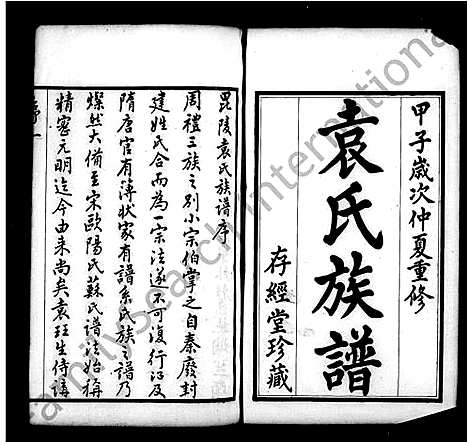 甲子歲次仲夏重修
袁氏族譜
存經堂珍藏
毘陵袁氏族譜序
周禮三族之別小宗伯掌之自秦廢封
建姓氏合而為一宗法遂不可復行江及
隋唐官有簿狀家有譜系氏族之譜乃
燦然大備至宋歐陽氏蘇氏譜法始稱
精密元明迄今由来尚矣袁珏生侍講
序一
familysearch international